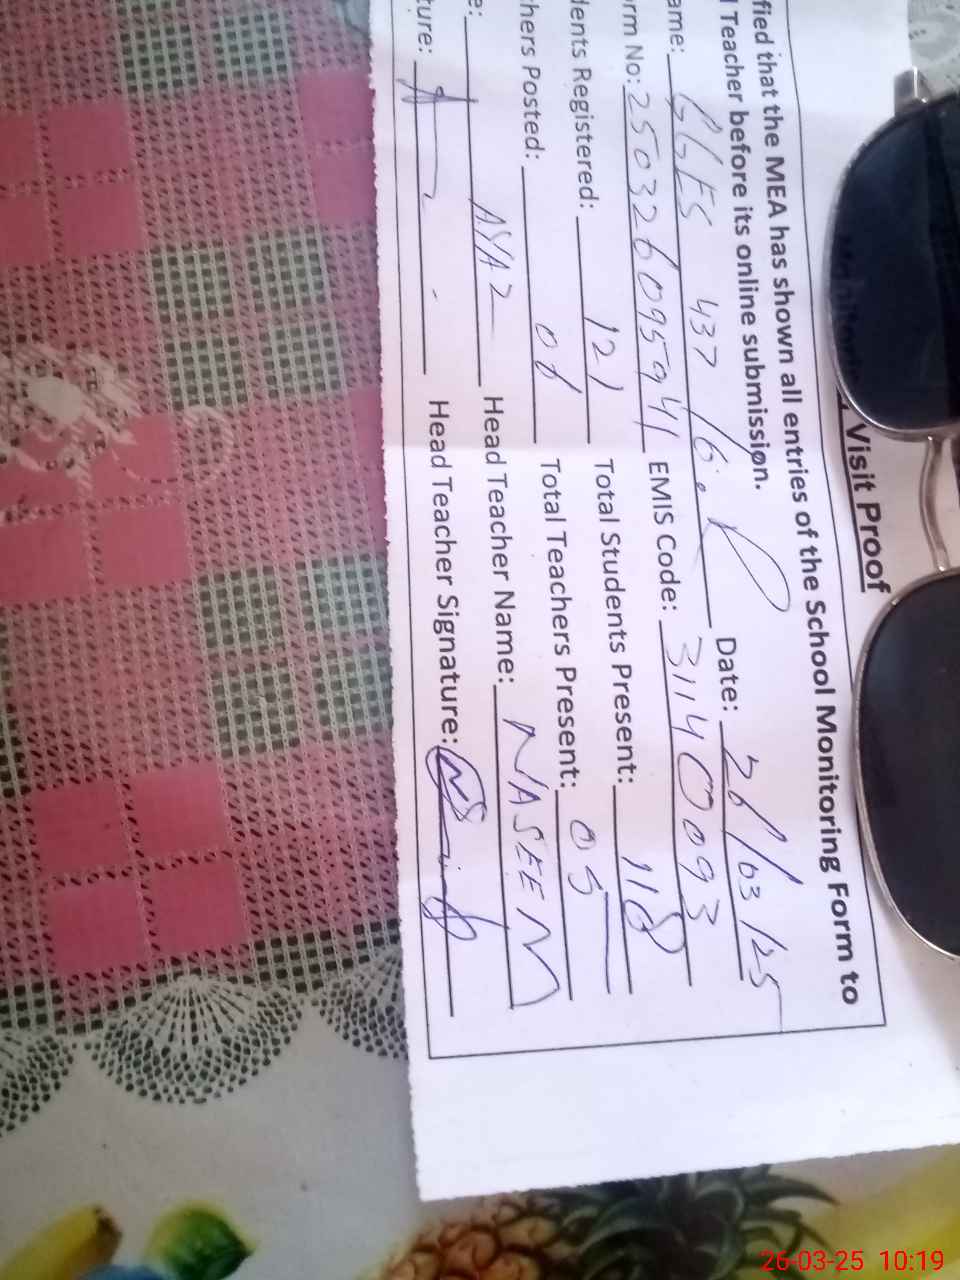 Visit Proof
fied that the MEA has shown all entries of the School Monitoring Form to
Teacher before its online submission.
ame: GGES 437/6.R Date: 26/03/25
rm No: 250326095941 EMIS Code: 31140093
dents Registered: 121 Total Students Present: 118
hers Posted: Total Teachers Present: 05
e: AYAZ Head Teacher Name: NASEEM
ture: Head Teacher Signature:
26-03-25 10:19